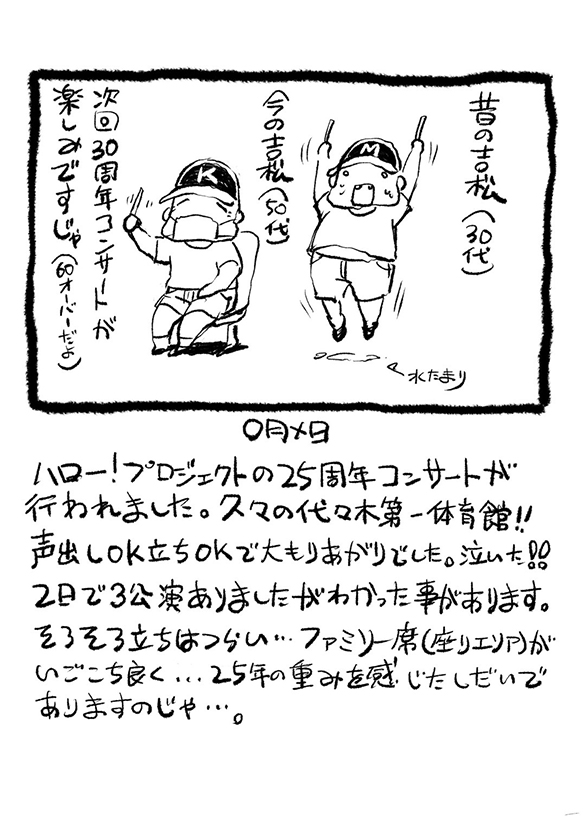 昔の吉松(30代)
M
水たまり
今の吉松(50代)
K
次回30周年コンサートが
楽しみですじゃ(60オーバーだよ)
〇月×日
ハロー!プロジェクトの25周年コンサートが
行われました。久々の代々木第一体育館!!
声出しOK立ちOKで大もりあがりでした。泣いた!!
2日で3公演ありましたがわかった事があります。
そろそろ立ちはつらい…ファミリー席(座りエリア)が
いごこち良く…25年の重みを感じたしだいで
ありますのじゃ…。